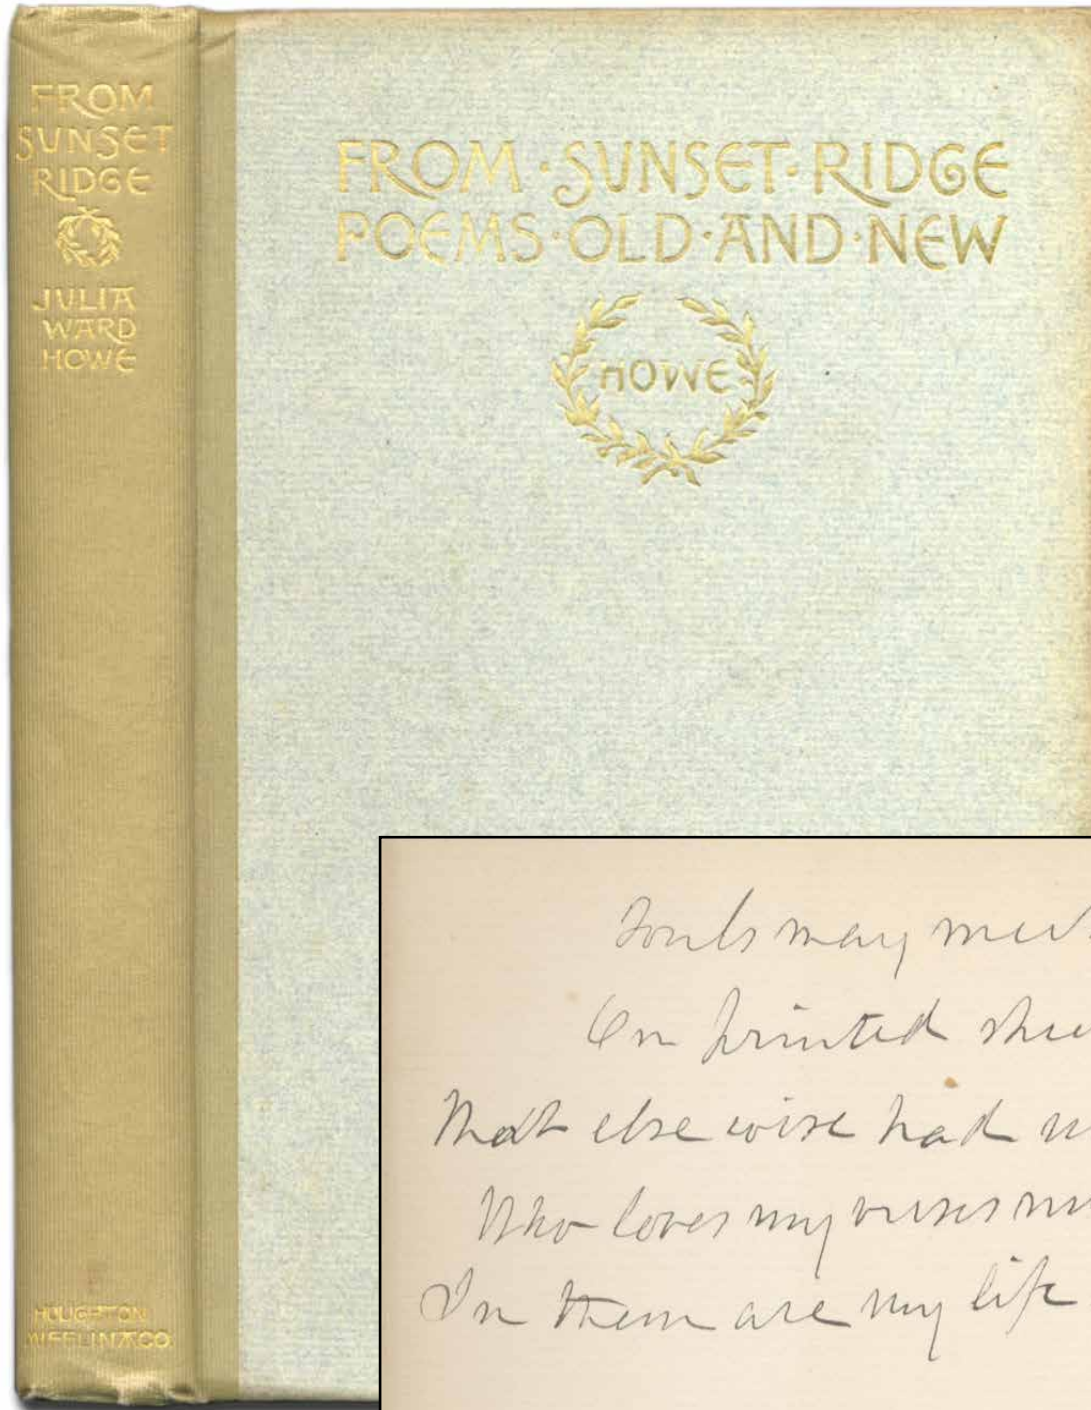 FROM
SUNSET
RIDGE
JULIA
WARD
HOWE
HOUGHTON
MIFFLIN & CO.
FROM · SUNSET · RIDGE
POEMS · OLD · AND · NEW
HOWE
Souls may
On printed
That elsewise had
Who loves my verses
In them are my life